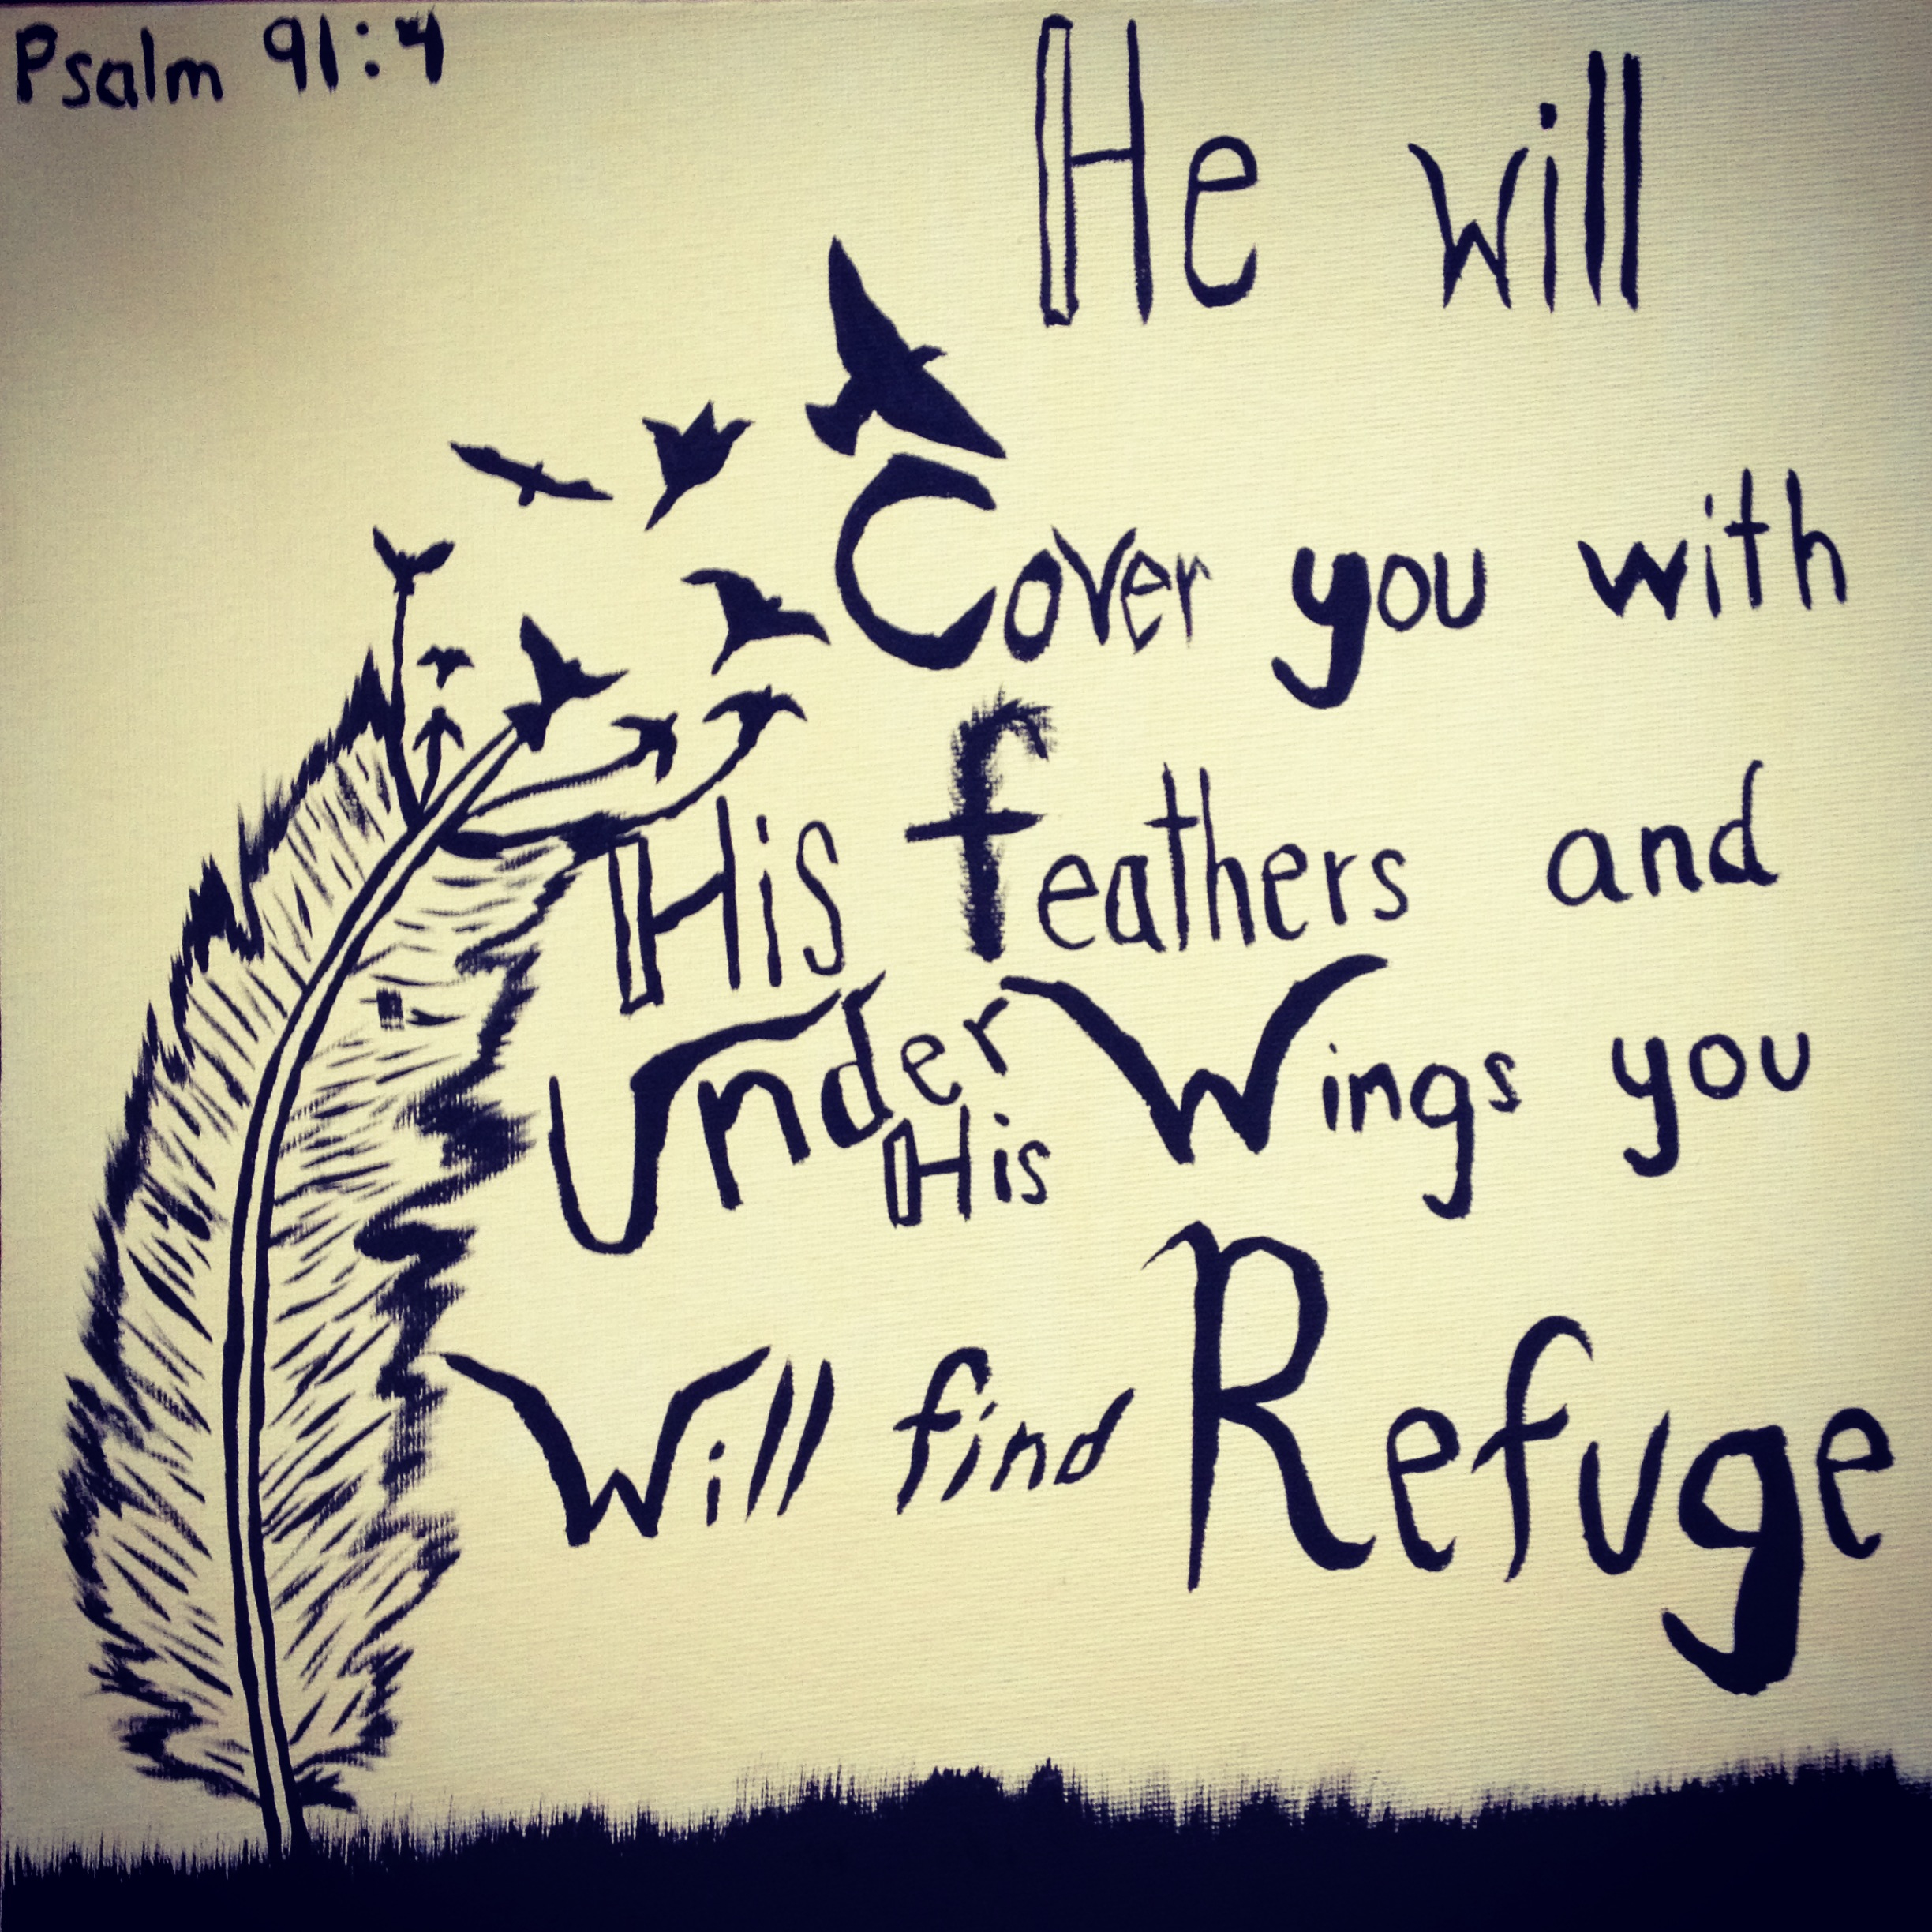 Psalm 91:4
He will
Cover you with
His feathers and
Under His Wings you
Will find Refuge